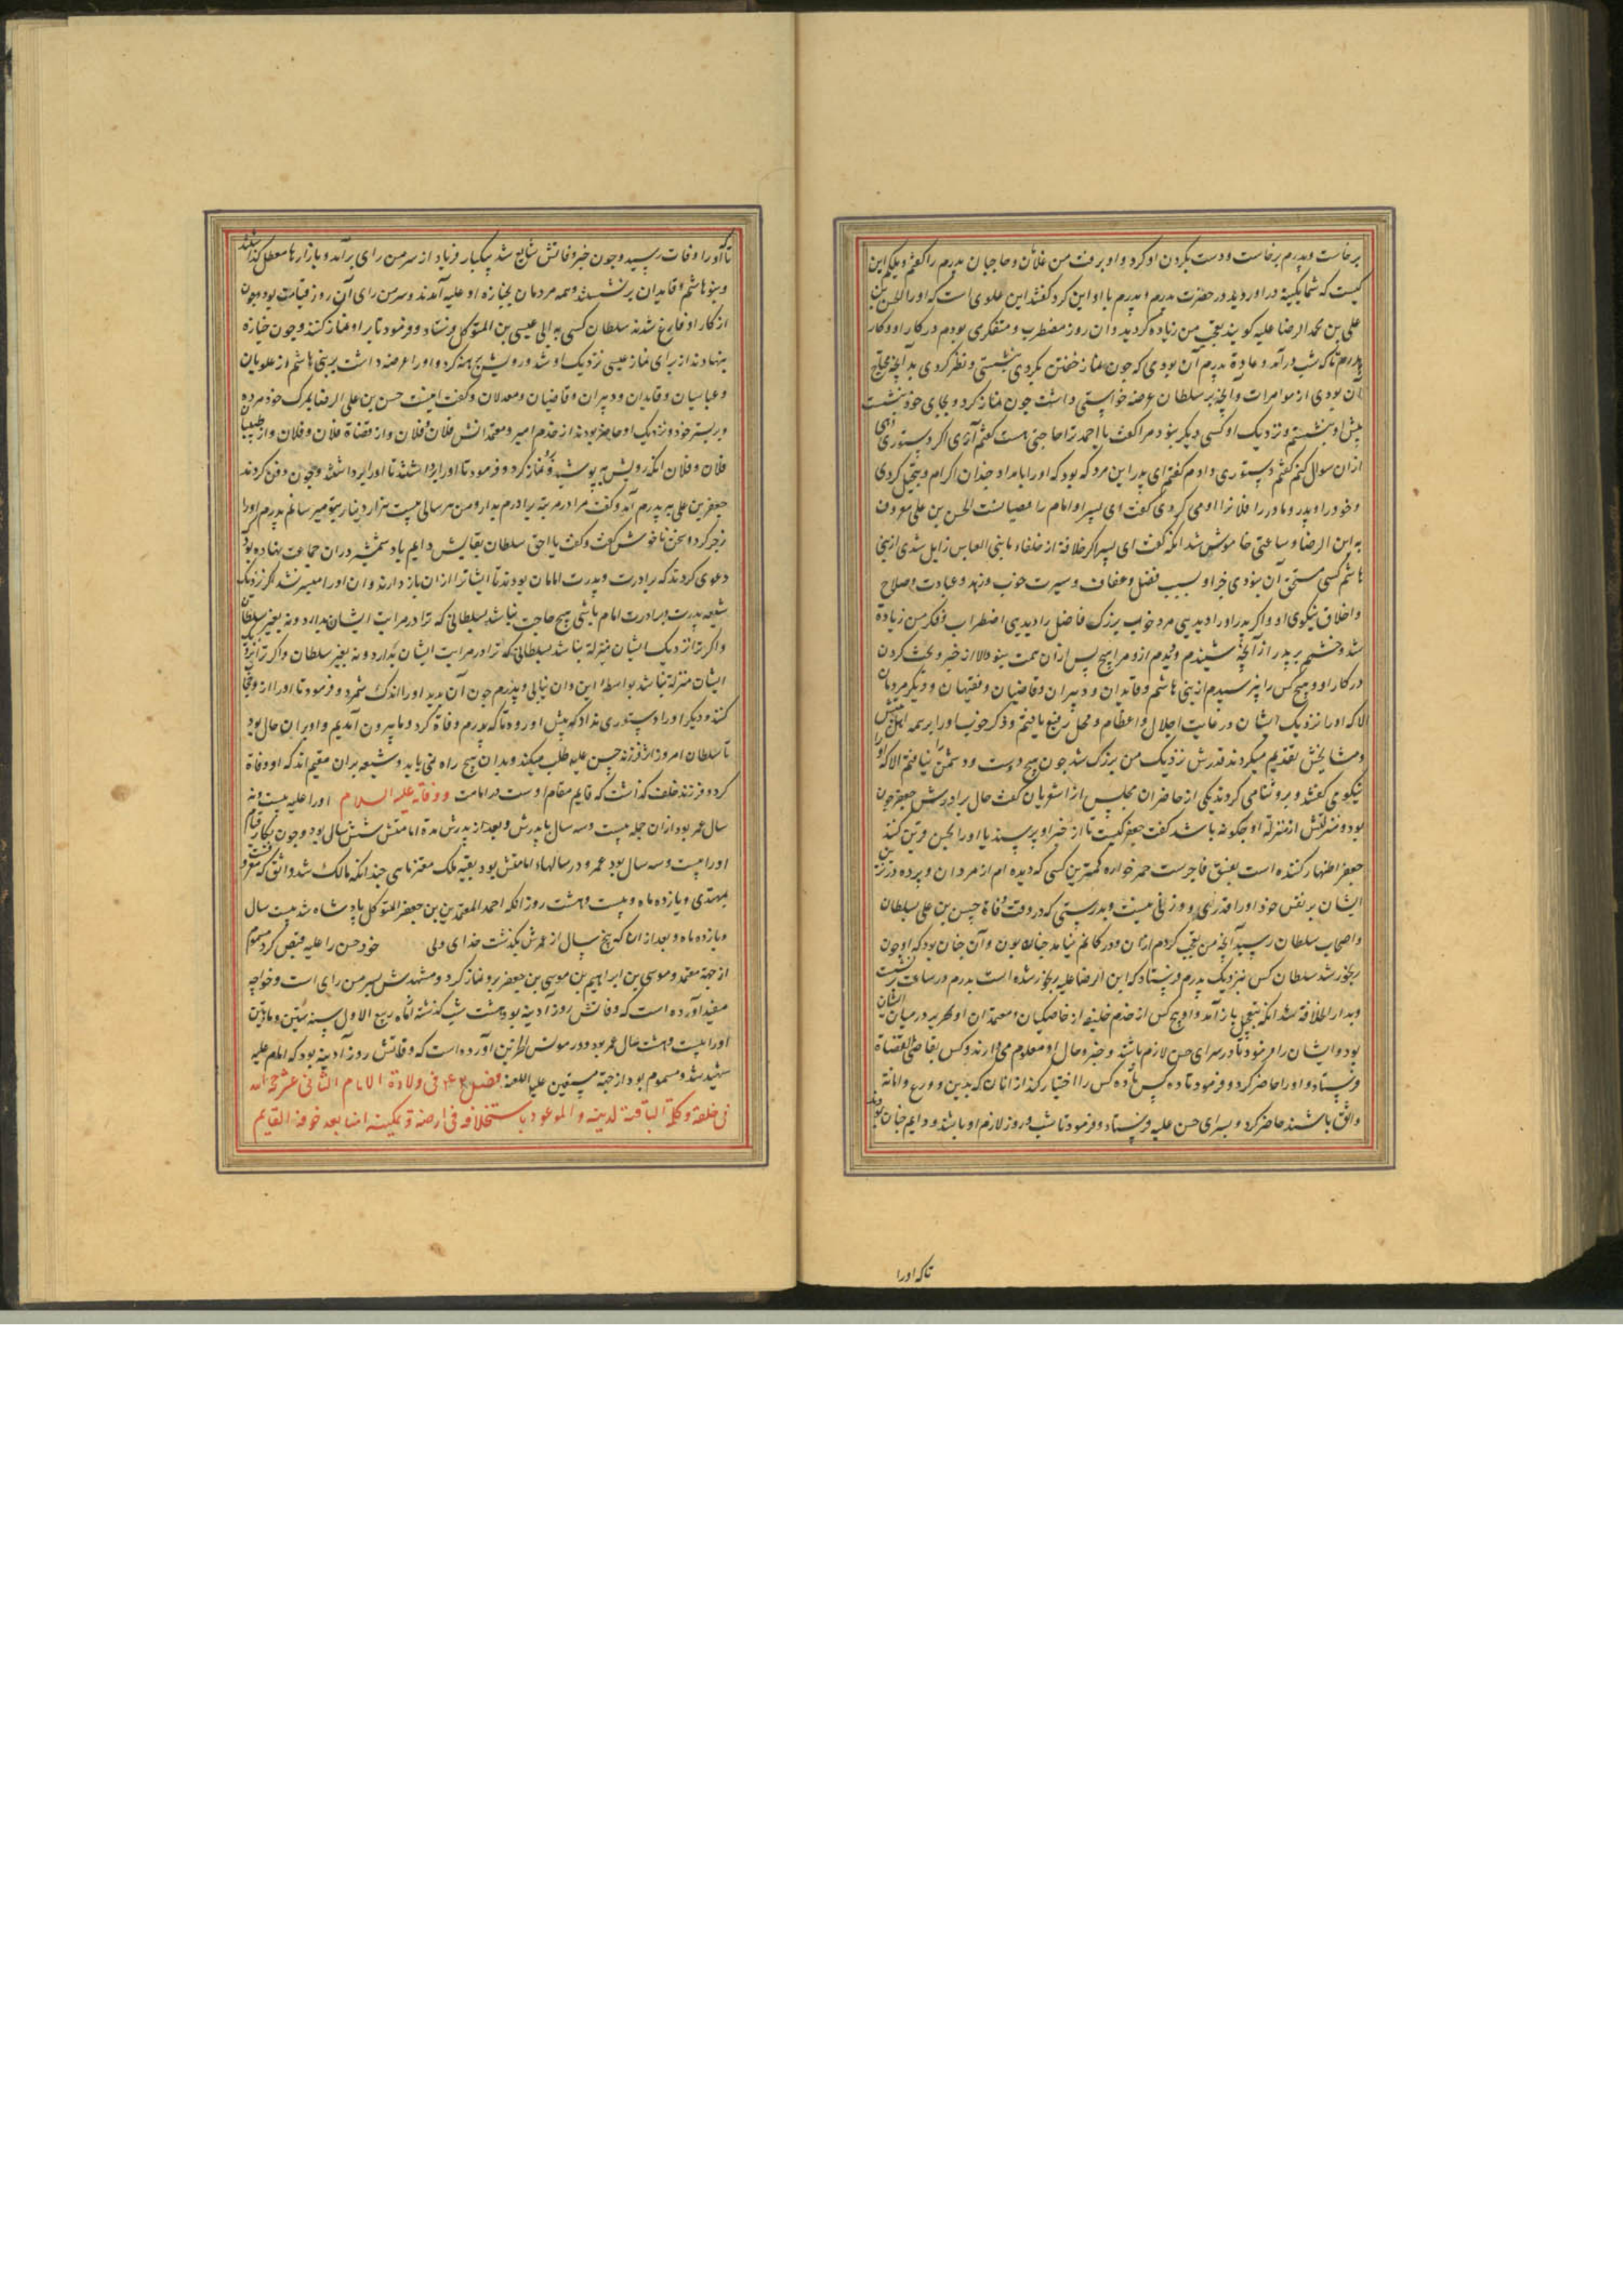 برخاست و پدرم برخاست و دست بکردن او کرد و او برفت من غلامان و حاجبان پدرم را کفتم ویلکم این
کیست که شما بکنیه در اوردید در حضرت پدرم و پدرم با او این کرد کفتند این علوی است که او را الحسن بن
علی بن محمد الرضا علیه کویند تعجب من زیاده کردید و ان روز مضطرب و متفکر می بودم در کار او و کار
پدرم تا که شب در آمد و عادة پدرم آن بودی که چون نماز خفتن بکردی بنشستی و نظر کردی بدآنچه محتاج
آن بودی از موامرات و آنچه بر سلطان عرضه خواستی داشت چون نماز کرد و بجای خود بنشست
پیش او بنشستم و نزدیک او کسی دیکر نبود مرا کفت یا احمد ترا حاجتی هست کفتم آری اکر دستوری دهی
ازان سوال کنم کفتم دستوری دادم کفتم ای پدر این مرد که بود که او را بامداد چندان اکرام و تبجیل کردی
و خود را و پدر و مادر را فدا او می کردی کفت ای پسر او امام رافضیانست الحسن بن علی معروف
به ابن الرضا و ساعتی خاموش شد انکه کفت ای پسر اکر خلافة از خلفاء بابنی العباس زایل شدی از بنی
هاشم کسی مستحق آن نبودی جز او بسبب فضل و عفاف و سیرت خوب و زهد و عبادت و صلاح
و اخلاق نیکوی او و اکر پدر او را دیدیی مرد خوب بزرک فاضل را دیدیی اضطراب و فکر من زیادة
شد و خشم بر پدر از آنچه شنیدم و دیدم ازو مرا هیچ پس ازان همت نبود الا از خبر و بحث کردن
در کار او و هیچ کس را نپرسیدم از بنی هاشم و قایدان و دبیران و قاضیان و فقیهان و دیکر مردمان
الا که او را نزدیک ایشان در غایت اجلال و اعظام و محل رفیع یافتم و ذکر خوب او را بر همه اهل بیتش
و مشایخش تقدیم میکردند قدرش نزدیک من بزرک شد چون هیچ دوست و دشمن نیافتم الا که او را
نیکوی کفتند و برو ثنا می کردند یکی از حاضران مجلس از اشعریان کفت حال برادرش جعفر چون
بود و منزلتش از منزلة او چکونه باشد کفت جعفر کیست تا از خبر او پرسند یا او را بحسن قرین کنند
جعفر اظهار کننده است بفسق فاجرست خمر خواره کمترین کسی که دیده ام از مردان و پرده درنده ترین
ایشان بر نفس خود او را قدری و وزنی نیست و بدرستی که در وقت وفاة حسن بن علی بسلطان
و اصحاب سلطان رسید آنچه من تعجب کردم ازان و در کانم نیامد چنان بودن و آن چنان بود که او چون
رنجور شد سلطان کس بنزدیک پدرم فرستاد که ابن الرضا علیه رنجور شده است پدرم در ساعت برنشست
و بدار الخلافة شد انکه بتعجیل باز آمد و او پنج کس از خدم خلیفه از خاصکیان و معتمدان او تحریر در میان ایشان
بود و ایشان را فرمود تا در سرای حسن لازم باشند و خبر و حال او معلوم می دارند و کس بقاضی القضاة
فرستاد و او را حاضر کرد و فرمود تا ده کس را اختیار کند از انان که بدین و ورع و امانة
واثق باشند حاضر کرد و بسرای حسن علیه فرستاد و فرمود تا شب و روز لازم او باشند و دایم چنان بود
تا که او را
تا او را وفات رسید و چون خبر وفاتش شایع شد یکبار فریاد از سر من رای بر آمد و بازارها معطل کذاشتند
و بنو هاشم و قایدان برنشستند و همه مردمان بجنازه او علیه آمدند و سر من رای آن روز قیامت بود چون
از کار او فارغ شدند سلطان کسی به ابی عیسی بن المتوکل فرستاد و فرمود تا بر او نماز کنند و چون جنازه
بنهادند از برای نماز عیسی نزدیک او شد و رویش برهنه کرد و او را عرضه داشت بر بنی هاشم از علویان
و عباسیان و قایدان و دبیران و قاضیان و معدلان و کفت اینست حسن بن علی الرضا بمرک خود مرده
و بر بستر خود و نزدیک او حاضر بودند از خدم امیر و معتمدانش فلان و فلان و از قضاة فلان و فلان و از طبیبان
فلان و فلان انکه رویش بپوشید و نماز کرد و فرمود تا او را برداشتند و چون دفن کردند
جعفر بن علی بر پدرم آمد و کفت مرا در مرتبة برادرم بدار و من هر سالی بیست هزار دینار بتو میرسانم پدرم او را
زجر کرد و سخن ناخوش کفت و کفت یا احمق سلطان بقایش دایم باد شمشیر دران جماعت نهاده بود که
دعوی کردند که برادرت و پدرت امامان بودند تا ایشانرا ازان باز دارند و ان او را میسر نشد اکر نزدیک
شیعه پدرت و برادرت امام باشی هیچ حاجت نباشد بسلطانی که ترا در مراتب ایشان بدارد و نه بغیر سلطان
و اکر ترا نزدیک ایشان منزلة نباشد بسلطانی که ترا در مراتب ایشان بدارد و نه بغیر سلطان و اکر ترا نزدیک
ایشان منزلة نباشد بواسطه این و ان نیابی و پدرم چون آن بدید او را اندک شمرد و فرمود تا او را از در
کنند و دیکر او را دستوری نداد که پیش او رود تا که پدرم وفاة کرد و ما بیرون آمدیم و او بر ان حال بود
تا سلطان امروز اثر فرزند حسن علیه طلب میکند و بدان هیچ راه نمی یابد و شیعه بران مقیم اند که او وفاة
کرد و فرزند خلف کذاشت که قایم مقام اوست در امامت و وفاته علیه السلام او را علیه بیست و نه
سال عمر بود ازان جمله بیست و سه سال با پدرش و بعد از پدرش مدة امامتش شش سال بود و چون بکار قیام
او را بیست و سه سال بود عمر و در سالهاء امامتش بود بقیه ملک معتز ماهی چند انکه مالک شد واثق که معروف
بمهتدی و یازده ماه و بیست و هشت روز انکه احمد المعتمد بن جعفر المتوکل پادشاه شد بیست سال
و یازده ماه و بعد ازان که پنج سال از عمرش بکذشت خدای ولی خود حسن را علیه قبض کرد مسموم
از جهة معتمد و موسی بن ابراهیم بن موسی بن جعفر برو نماز کرد و مشهدش بسر من رای است و خواجه
مفید آورده است که وفاتش روز آدینه بود هشت شب کذشته از ماه ربیع الاول سنه ستین و مایتین
او را بیست و هشت سال عمر بود و در مونس الحزین آورده است که وفاتش روز آدینه بود که امام علیه
شهید شد و مسموم بود از جهة مستعین علیه اللعنه فصل فی ولادة الامام الثانی عشر حجة الله
فی خلقه و کلمة الباقیة لدینه و الموعود باستخلافه فی ارضه و تمکینه امنا بعد خوفه القایم